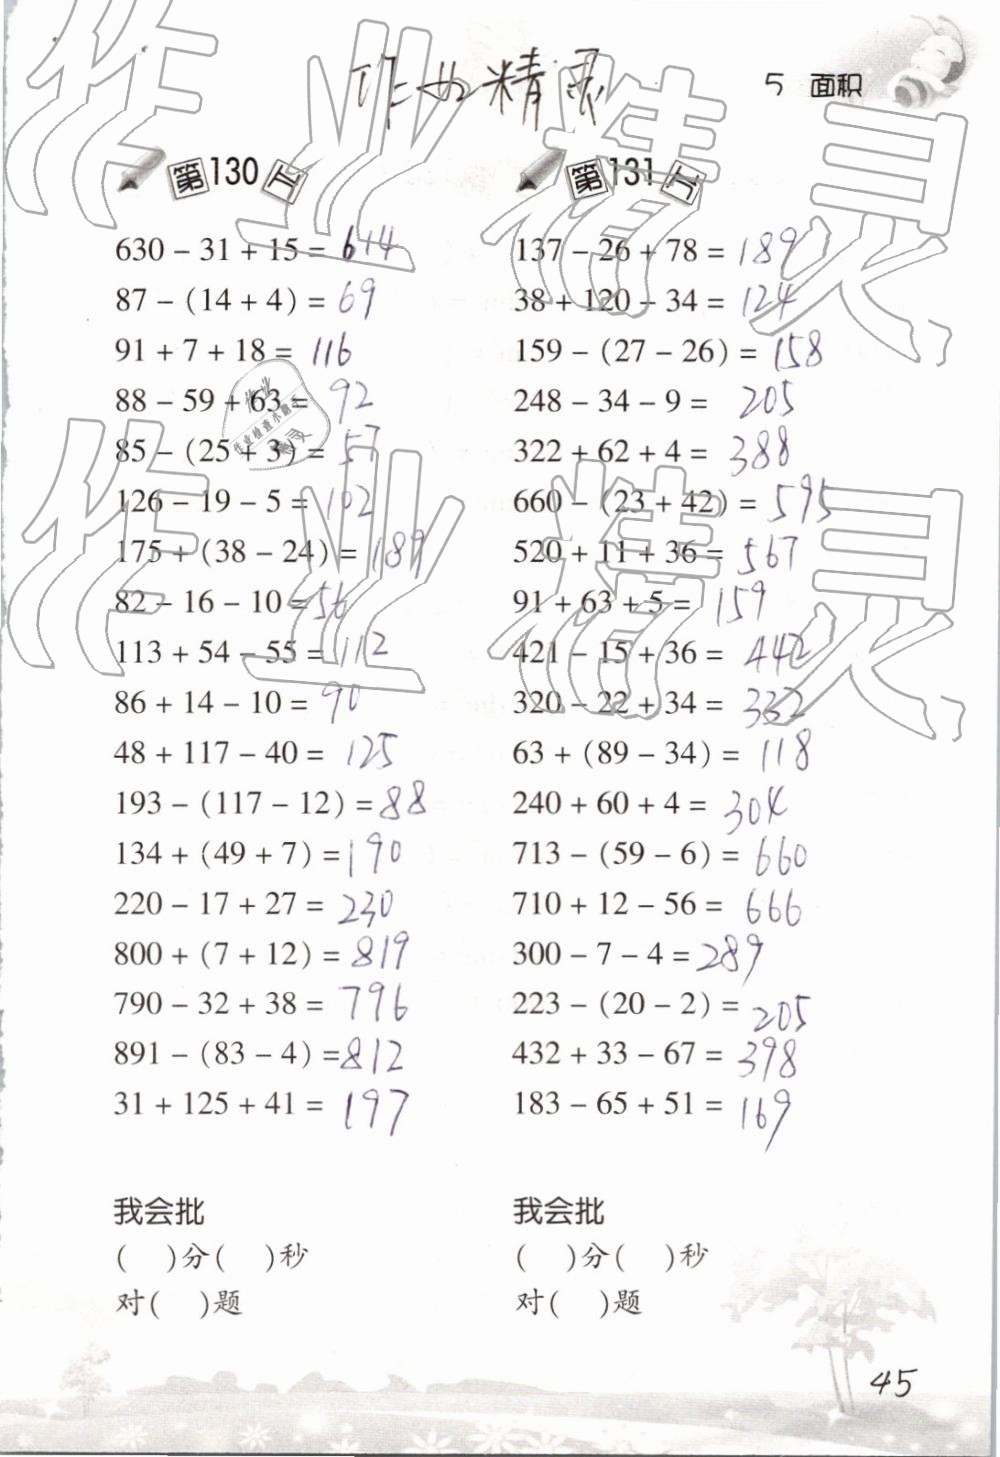 作业精灵
5 面积
第130页
630 − 31 + 15 = 614
87 − (14 + 4) = 69
91 + 7 + 18 = 116
88 − 59 + 63 = 92
85 − (25 + 3) = 57
126 − 19 − 5 = 102
175 + (38 − 24) = 189
82 − 16 − 10 = 56
113 + 54 − 55 = 112
86 + 14 − 10 = 90
48 + 117 − 40 = 125
193 − (117 − 12) = 88
134 + (49 + 7) = 190
220 − 17 + 27 = 230
800 + (7 + 12) = 819
790 − 32 + 38 = 796
891 − (83 − 4) = 812
31 + 125 + 41 = 197
我会批
( )分( )秒
对( )题
第131页
137 − 26 + 78 = 189
38 + 120 − 34 = 124
159 − (27 − 26) = 158
248 − 34 − 9 = 205
322 + 62 + 4 = 388
660 − (23 + 42) = 595
520 + 11 + 36 = 567
91 + 63 + 5 = 159
421 − 15 + 36 = 442
320 − 22 + 34 = 332
63 + (89 − 34) = 118
240 + 60 + 4 = 304
713 − (59 − 6) = 660
710 + 12 − 56 = 666
300 − 7 − 4 = 289
223 − (20 − 2) = 205
432 + 33 − 67 = 398
183 − 65 + 51 = 169
我会批
( )分( )秒
对( )题
45
作业精灵
作业精灵